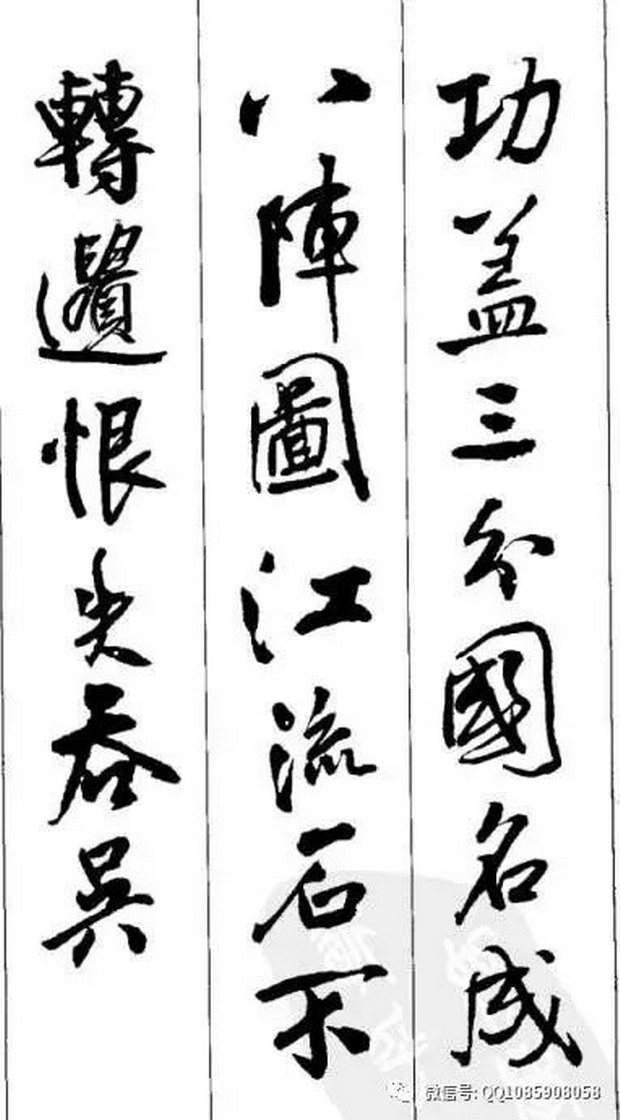 功盖三分國名成
八陣圖江流石不
轉遺恨失吞吳
微信号: QQ1085908058